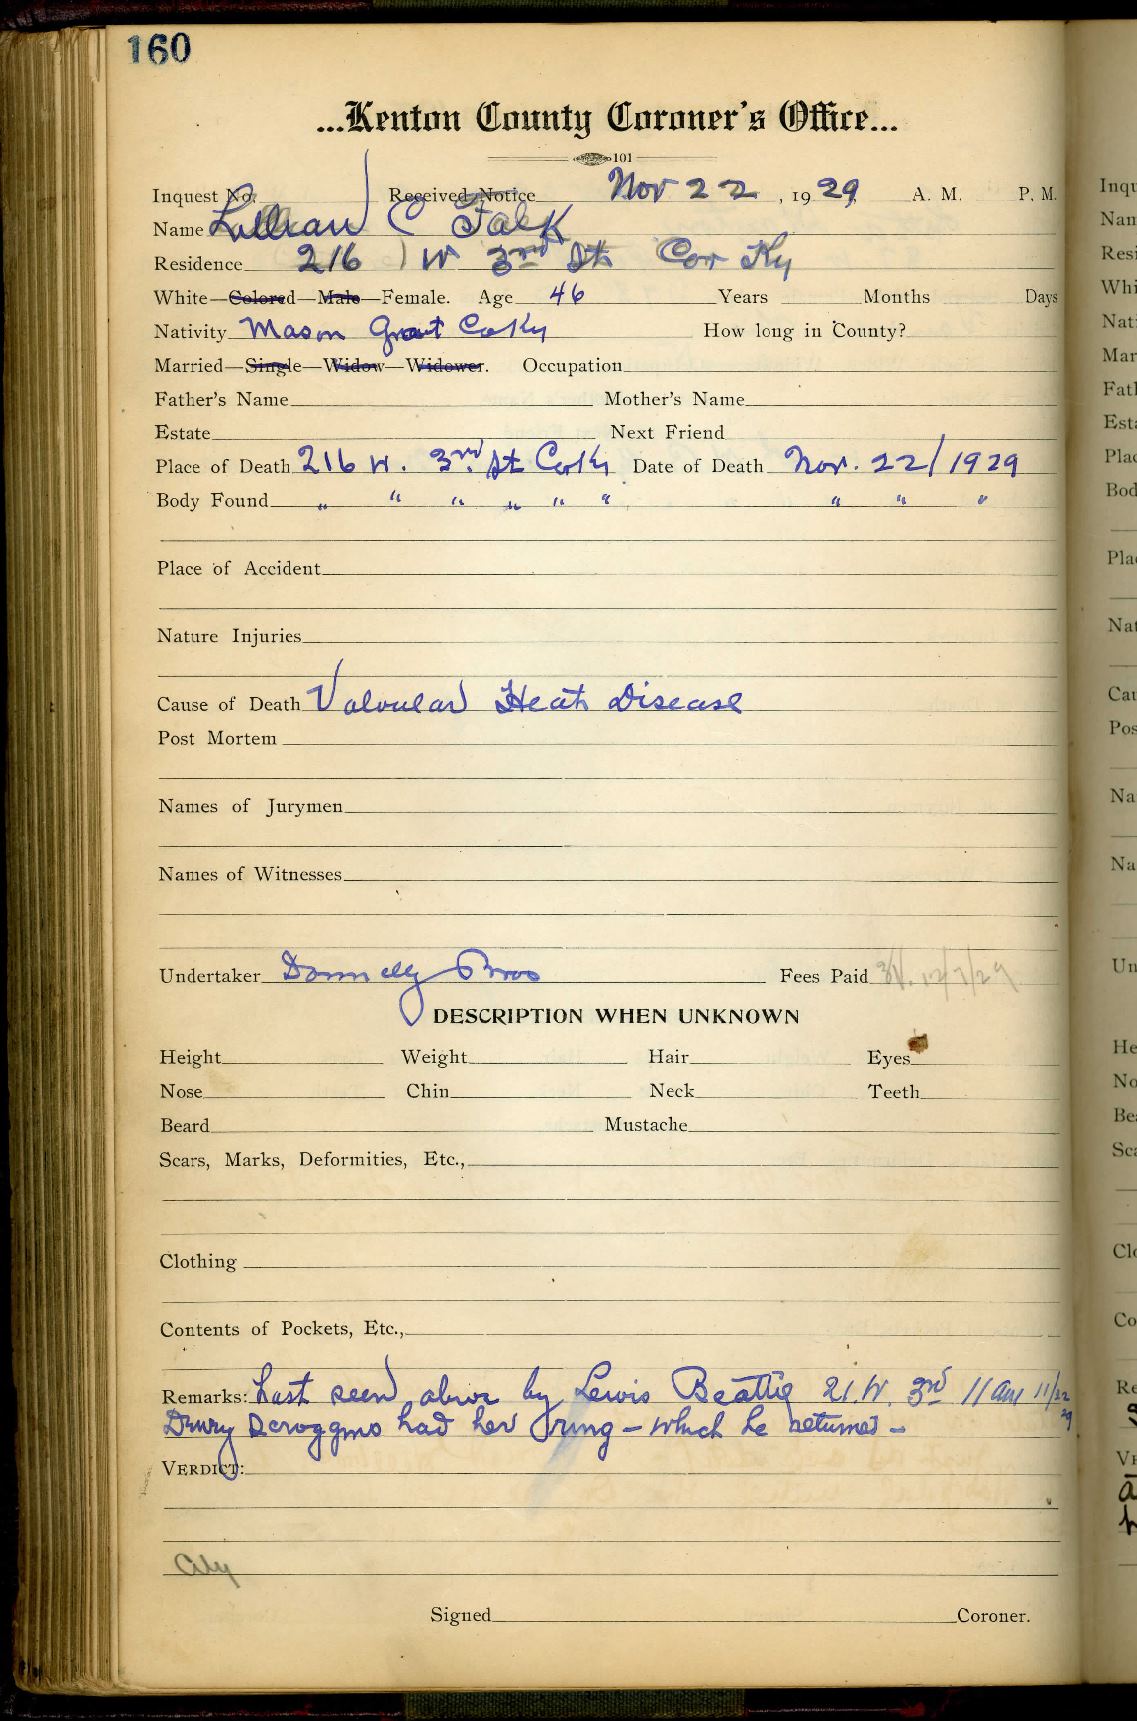 160
...Kenton County Coroner's Office...
101
Inquest No. Received Notice Nov 22, 1929 A. M. P. M.
Name Lillian C Falk
Residence 216 W 3rd St Cov Ky
White—Colored—Male—Female. Age 46 Years Months Days
Nativity Mason Grant Co Ky How long in County?
Married—Single—Widow—Widower. Occupation
Father's Name Mother's Name
Estate Next Friend
Place of Death 216 W. 3rd St Cov Ky Date of Death Nov. 22/1929
Body Found " " " " " " " " "
Place of Accident
Nature Injuries
Cause of Death Valvular Heart Disease
Post Mortem
Names of Jurymen
Names of Witnesses
Undertaker Donnelly Bros Fees Paid 12/7/29
DESCRIPTION WHEN UNKNOWN
Height Weight Hair Eyes
Nose Chin Neck Teeth
Beard Mustache
Scars, Marks, Deformities, Etc.,
Clothing
Contents of Pockets, Etc.,
Remarks: Last seen alive by Lewis Beattie 21. W. 3rd 11 am 11/22 29
Drury Scroggins had her ring – which he returned –
VERDICT:
City
Signed Coroner.
Inqu
Nam
Resi
Whi
Nati
Mar
Fath
Esta
Plac
Bod
Plac
Nat
Cau
Pos
Na
Na
Un
He
No
Bea
Sca
Clo
Co
Re
VE